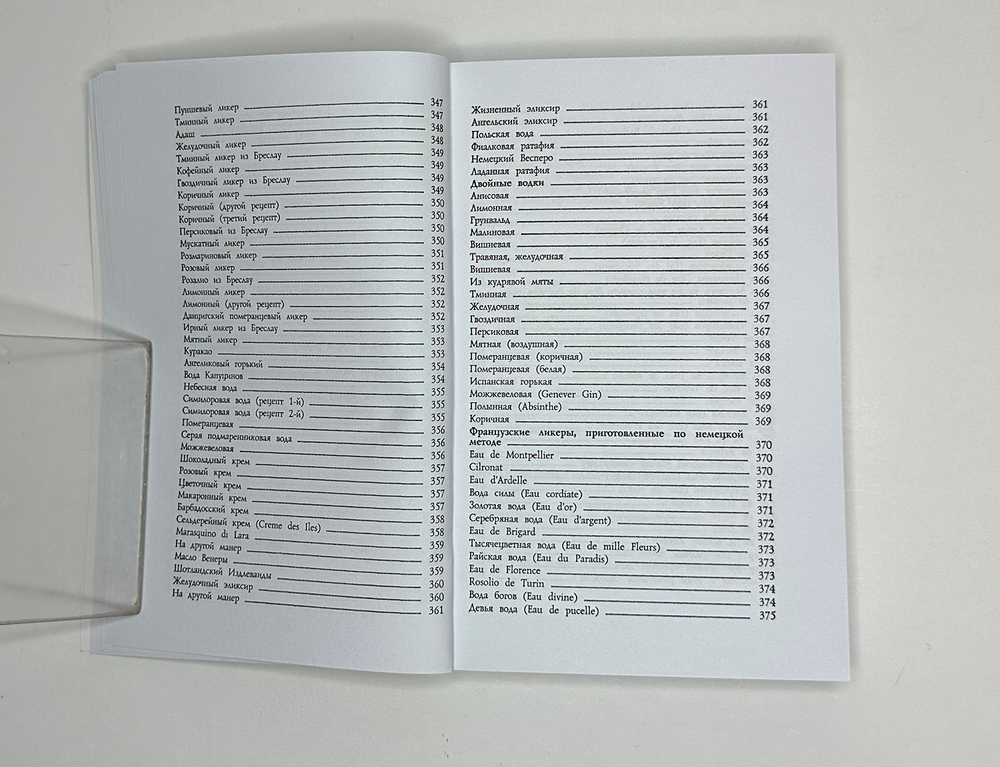 Пуншевый ликер 347
Тминный ликер 347
Адаш 348
Желудочный ликер 348
Тминный ликер из Бреслау 349
Кофейный ликер 349
Гвоздичный ликер из Бреслау 349
Коричный ликер 349
Коричный (другой рецепт) 350
Коричный (третий рецепт) 350
Персиковый из Бреслау 350
Мускатный ликер 350
Розмариновый ликер 351
Розовый ликер 351
Розалио из Бреслау 352
Лимонный ликер 352
Лимонный (другой рецепт) 352
Данцигский померанцевый ликер 352
Ирный ликер из Бреслау 353
Мятный ликер 353
Куракао 353
Ангеликовый горький 354
Вода Капуцинов 354
Небесная вода 355
Симилоровая вода (рецепт 1-й) 355
Симилоровая вода (рецепт 2-й) 355
Померанцевая 356
Серая подмаренниковая вода 356
Можжевеловая 356
Шоколадный крем 357
Розовый крем 357
Цветочный крем 357
Макаронный крем 357
Барбадосский крем 358
Сельдерейный крем (Creme des Iles) 358
Marasquino di Lara 359
На другой манер 359
Масло Венеры 359
Шотландский Издлеваиды 360
Желудочный эликсир 360
На другой манер 361
Жизненный эликсир 361
Ангельский эликсир 361
Польская вода 362
Фиалковая ратафия 362
Немецкий Весперо 363
Ладанная ратафия 363
Двойные водки 363
Анисовая 363
Лимонная 364
Грунвальд 364
Малиновая 364
Вишневая 365
Травяная, желудочная 365
Вишневая 366
Из кудрявой мяты 366
Тминная 366
Желудочная 367
Гвоздичная 367
Персиковая 367
Мятная (воздушная) 368
Померанцевая (коричная) 368
Померанцевая (белая) 368
Испанская горькая 368
Можжевеловая (Genever Gin) 369
Полынная (Absinthe) 369
Коричная 369
Французские ликеры, приготовленные по немецкой
методе 370
Eau de Montpellier 370
Cilronat 370
Eau d'Ardelle 371
Вода силы (Eau cordiate) 371
Золотая вода (Eau d'or) 371
Серебряная вода (Eau d'argent) 372
Eau de Brigard 372
Тысячецветная вода (Eau de mille Fleurs) 373
Райская вода (Eau du Paradis) 373
Eau de Florence 373
Rosolio de Turin 374
Вода богов (Eau divine) 374
Девья вода (Eau de pucelle) 375